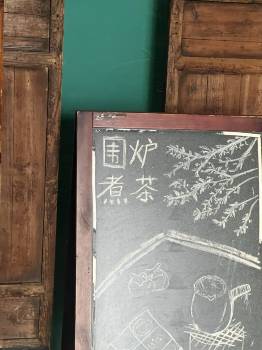 围炉
煮茶